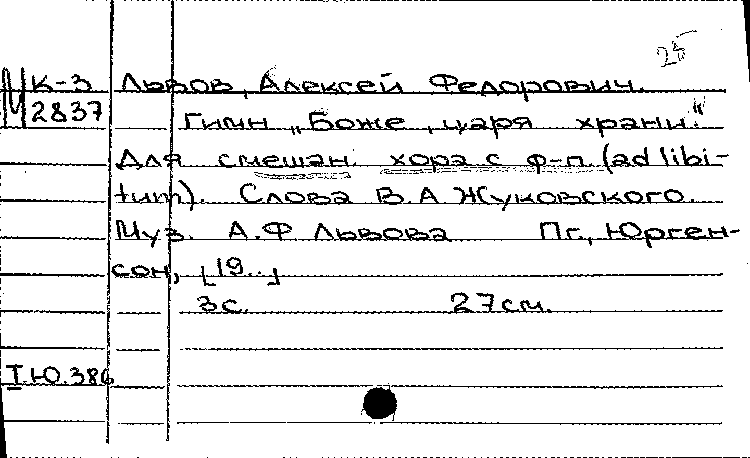 25
М К-3 Львов, Алексей Федорович.
2837 Гимн „Боже, царя храни."
Для смешан. хора с ф-п. (ad libi-
tum). Слова В.А Жуковского.
Муз. А.Ф Львова Пг., Юрген-
сон, [19..]
3с. 27см.
I.Ю.386